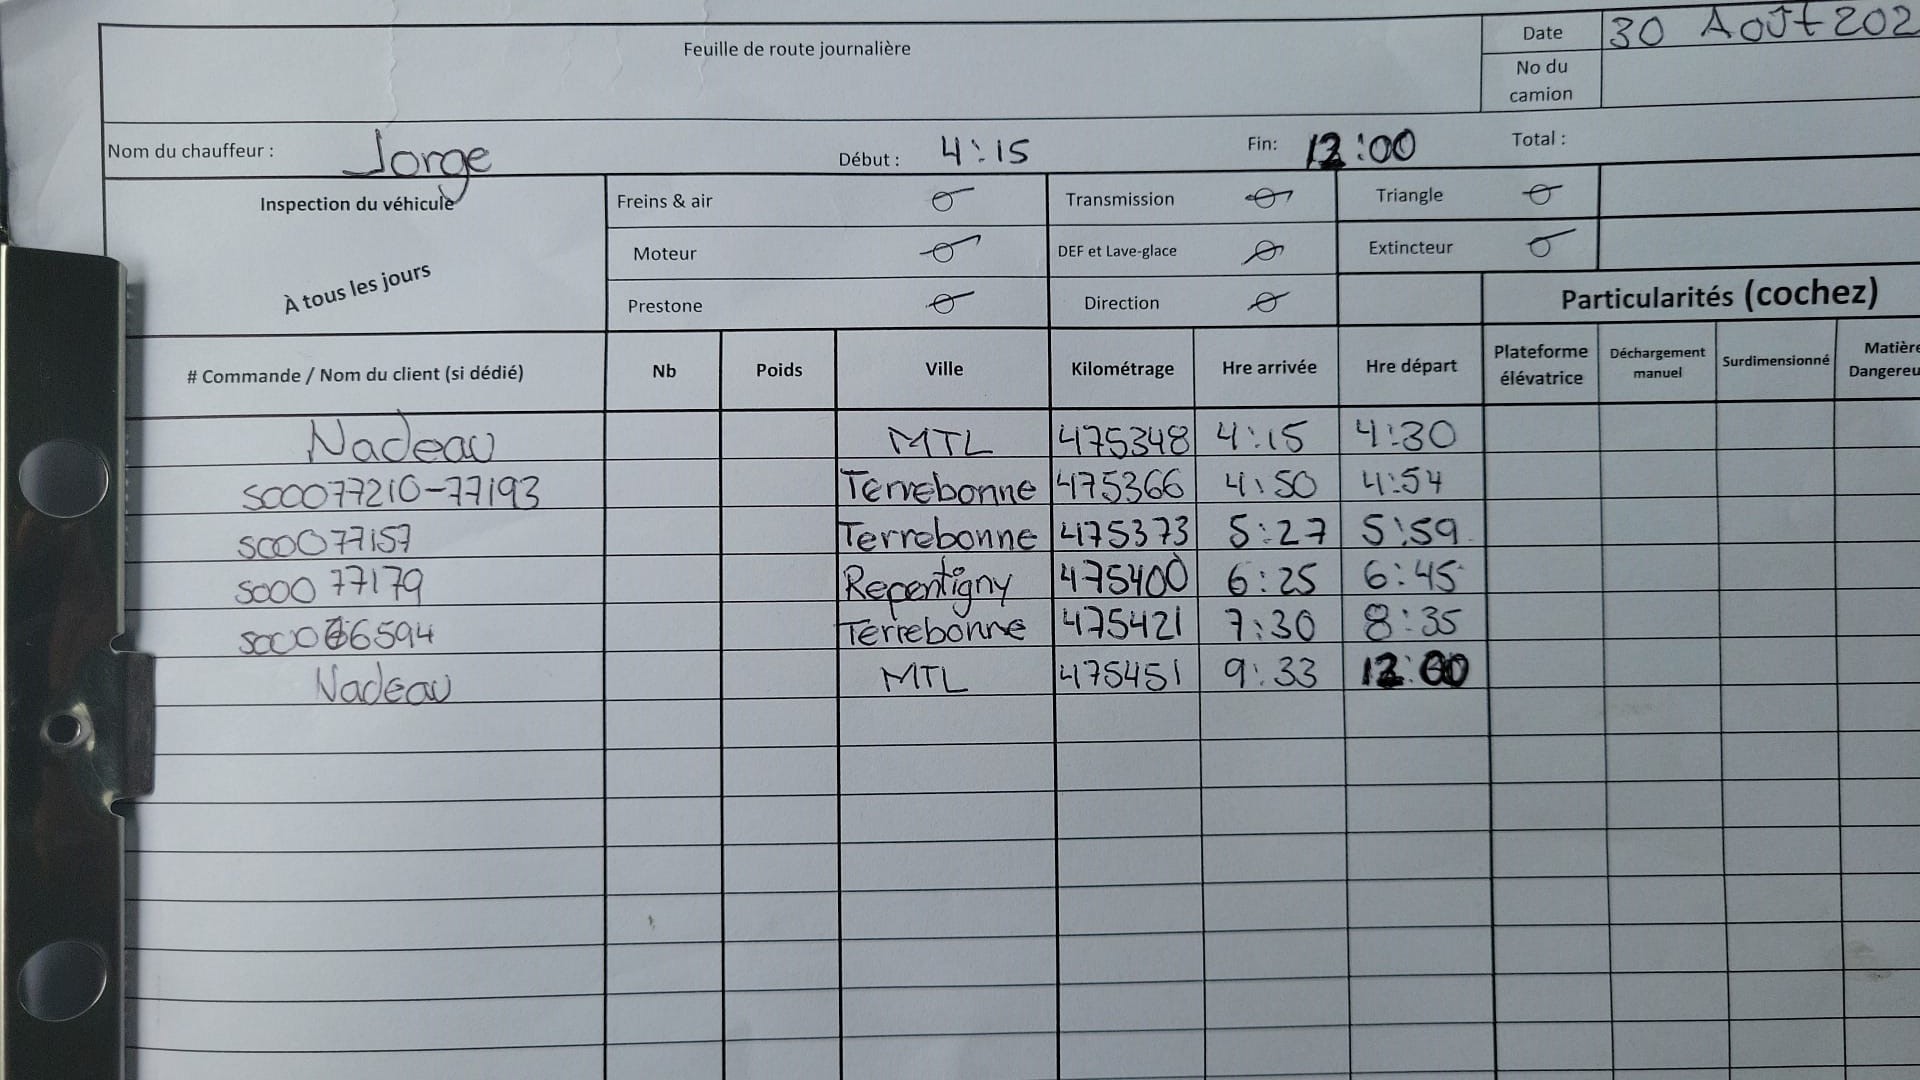 Feuille de route journalière
Date 30 AOÛt 202
No du camion
Nom du chauffeur : Jorge Début : 4:15 Fin: 12:00 Total :
Inspection du véhicule
À tous les jours
Freins & air Transmission Triangle
Moteur DEF et Lave-glace Extincteur
Prestone Direction
Particularités (cochez)
# Commande / Nom du client (si dédié) Nb Poids Ville Kilométrage Hre arrivée Hre départ Plateforme élévatrice Déchargement manuel Surdimensionné Matière Dangereu
Nadeau MTL 475348 4:15 4:30
SO0077210-77193 Terrebonne 475366 4:50 4:54
SO0077157 Terrebonne 475373 5:27 5:59
SO0077179 Repentigny 475400 6:25 6:45
Terrebonne 475421 7:30 8:35
Nadeau MTL 475451 9:33 12:00